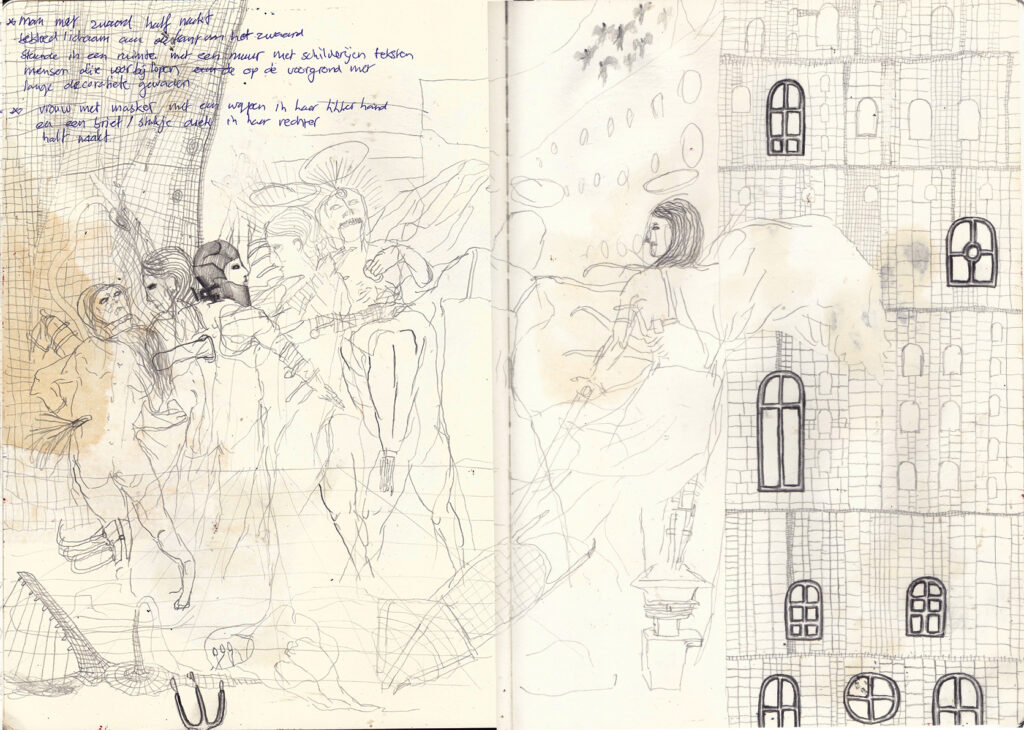 man met zwaard half nakt
bebloed lichaam aan de het zwaard
staande in een ruimte met een muur met schilderijen teksten
mensen die voorbij lopen op de voorgrond met
lange decoratieve gewaden
vrouw met masker met een wapen in haar linker hand
en een brief / stukje doek in haar rechter
half naakt